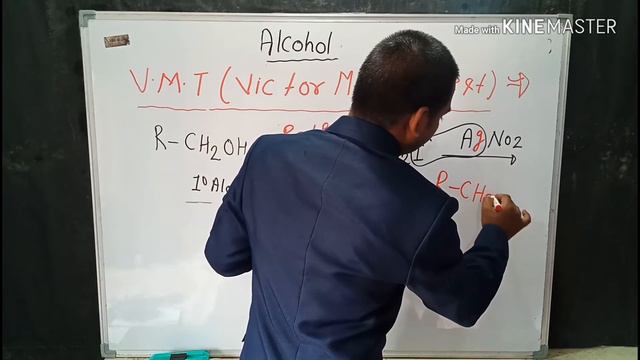 Made with KINEMASTER
Alcohol
V.M.T (Victor M
R-CH2OH I AgNO2
1° Al R-CH